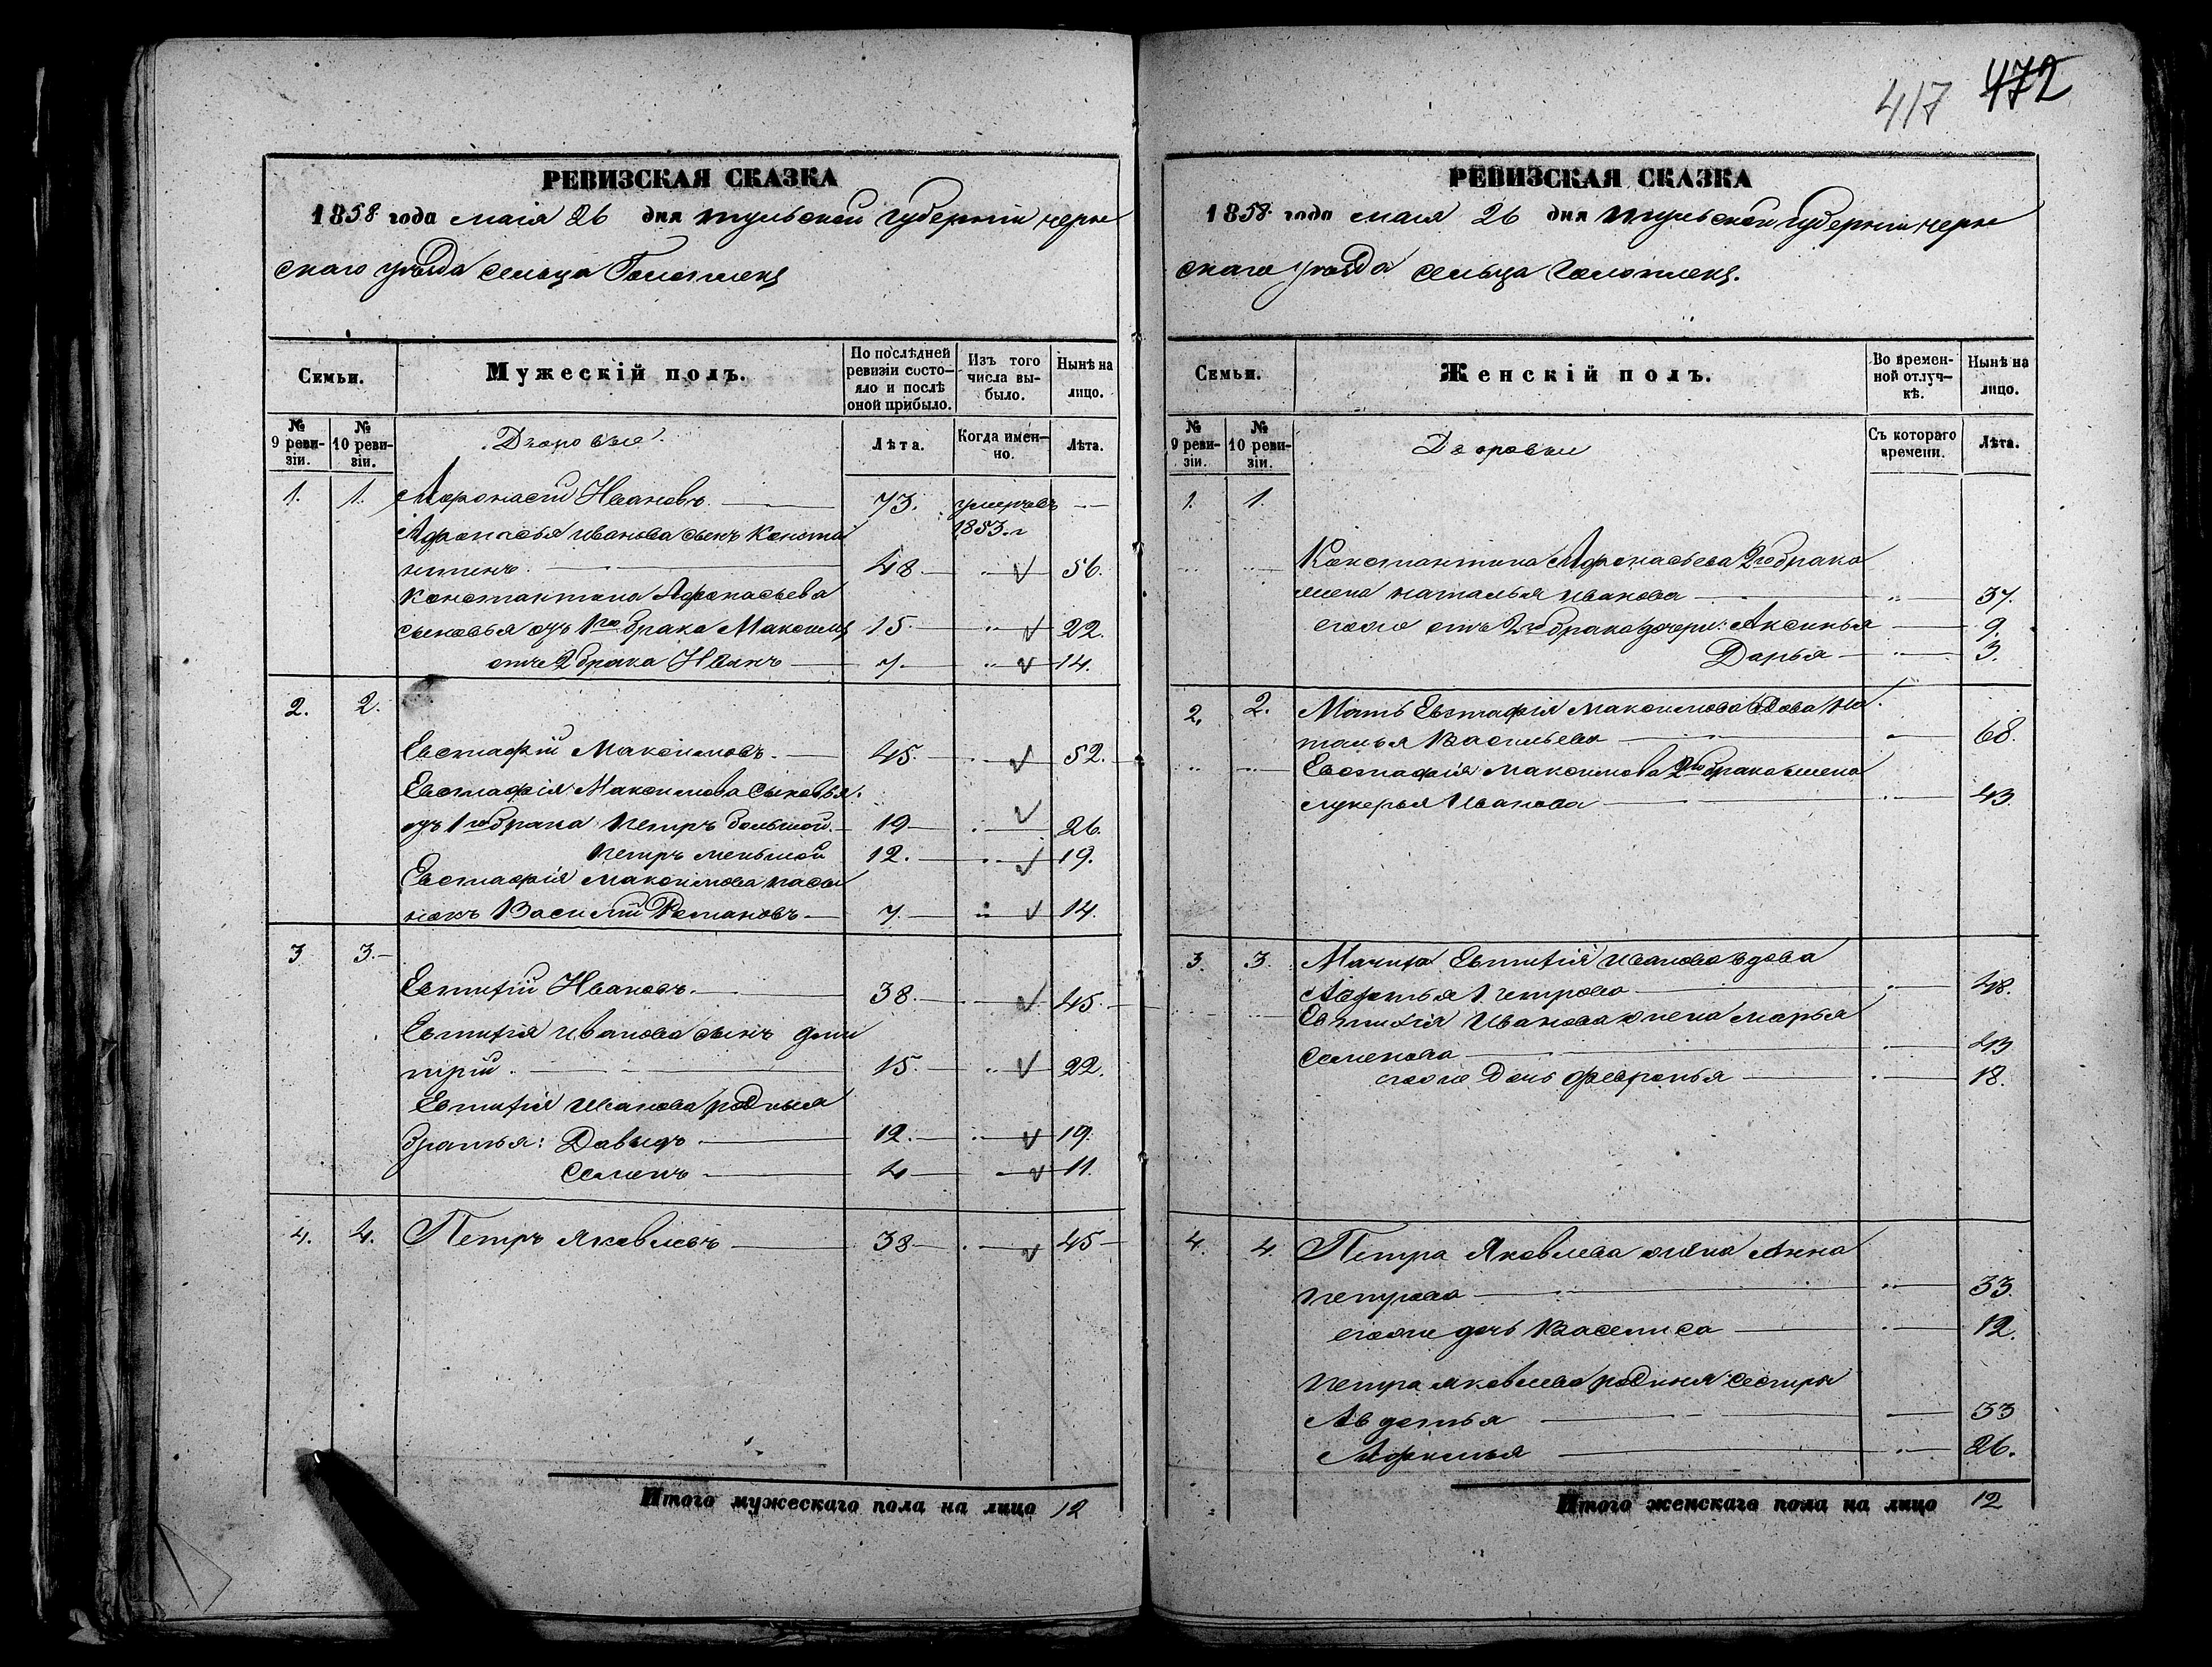 417 472
РЕВИЗСКАЯ СКАЗКА
1858 года маія 26 дня тульской губерніи черн
скаго уѣзда сельца Голотлец
Семьи.
Мужескій полъ.
По послѣдней ревизіи состо-яло и послѣ оной прибыло.
Изъ того числа вы-было.
Нынѣ на лицо.
№ 9 реви-зіи.
№ 10 реви-зіи.
Дворовые.
Лѣта.
Когда имен-но.
Лѣта.
1. 1. Афонасій Ивановъ 73. умерчевъ
Афонасья иванова сынъ Конста 1853. г
нтинъ. 48. 56.
Константина Афонасьева
сыновья отъ 1го брака Максимъ 15. 22.
отъ 2 брака Иванъ 7. 14.
2. 2.
Евстафій Максимовъ. 45. 52.
Евстафія Максимова сыновья:
отъ 1го брака Петръ большой. 19 26.
Петръ меньшой 12. 19.
Евстафія Максимова пасы
нокъ Василій Романовъ 7. 14.
3 3.
Евтифій Ивановъ. 38. 45.
Евтифія иванова сынъ дми
трій. 15. 22.
Евтифія Иванова родныя
братья: Давыдъ 12. 19.
Семенъ 4 11.
4. 4. Петръ Яковлевъ 38 45
Итого мужескаго пола на лицо 12
РЕВИЗСКАЯ СКАЗКА
1858 года маія 26 дня тульской губерніи черн
скаго уѣзда сельца Голотлец.
Семьи.
Женскій полъ.
Во времен-ной отлуч-кѣ.
Нынѣ на лицо.
№ 9 реви-зіи.
№ 10 реви-зіи.
Дворовыи
Съ котораго времени.
Лѣта.
1. 1.
Константина Афонасьева 2го брака
жена наталья иванова 37.
егоже отъ 2го брака дочери: Аксинья 9.
Дарья 3.
2. 2. Мать Евстафія Максимова вдова На
талья Васильева 68.
Евстафія Максимова 2го брака жена
лукерья Иванова 43
3. 3. Мачиха Евтифія иванова вдова
Авдотья Петрова 48.
Евтифія Иванова жена марья
Семенова 43
егоже дочь февронья 18.
4. 4. Петра Яковлева жена Анна
петрова 33.
егоже дочь Василиса 12.
Петра яковлева родныя сестры
Авдотья 33
Афимья 26.
Итого женскаго пола на лицо 12